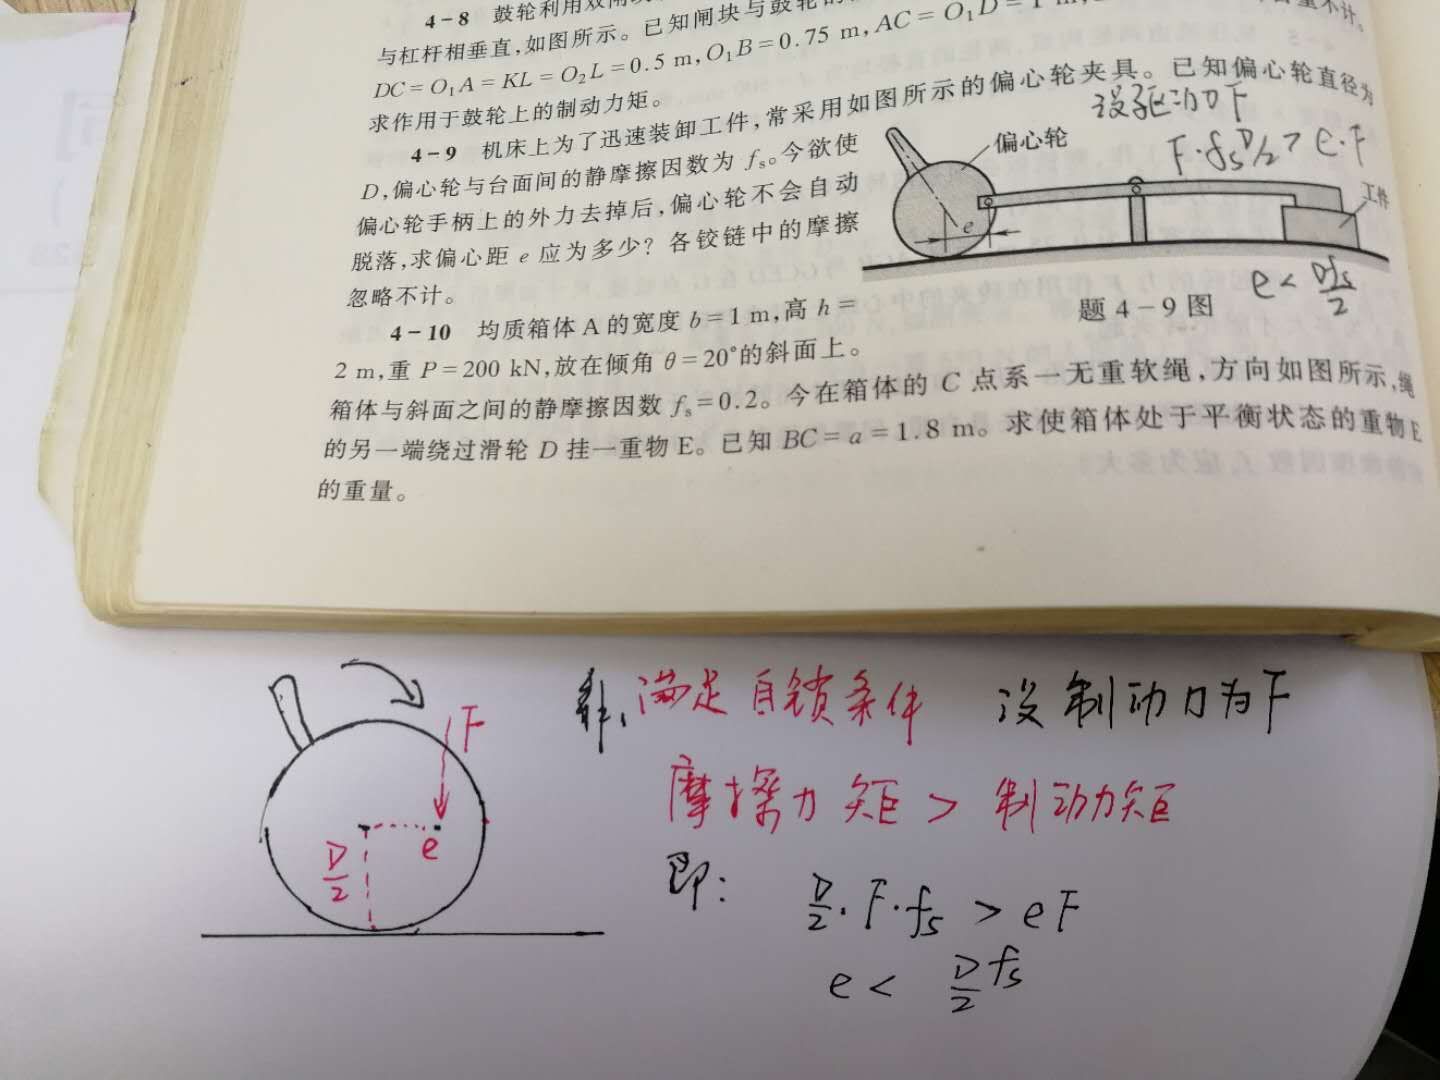 4-8 鼓轮利用双闸
与杠杆相垂直,如图所示。已知闸块与鼓轮的
DC=O₁A=KL=O₂L=0.5 m,O₁B=0.75 m,AC=O₁D=1 m,
不计。
求作用于鼓轮上的制动力矩。
4-9 机床上为了迅速装卸工件,常采用如图所示的偏心轮夹具。已知偏心轮直径为
D,偏心轮与台面间的静摩擦因数为 fₛ。今欲使
偏心轮手柄上的外力去掉后,偏心轮不会自动
脱落,求偏心距 e 应为多少?各铰链中的摩擦
忽略不计。
设驱动力F
F·fₛD/2 > e·F
偏心轮
工件
e
题 4-9 图
e < Dfₛ/2
4-10 均质箱体 A 的宽度 b=1 m,高 h=
2 m,重 P=200 kN,放在倾角 θ=20°的斜面上。
箱体与斜面之间的静摩擦因数 fₛ=0.2。今在箱体的 C 点系一无重软绳,方向如图所示,绳
的另一端绕过滑轮 D 挂一重物E。已知 BC=a=1.8 m。求使箱体处于平衡状态的重物E
的重量。
F
e
D/2
解: 满足自锁条件 设制动力为F
摩擦力矩 > 制动力矩
即: D/2·F·fₛ > eF
e < D/2 fₛ